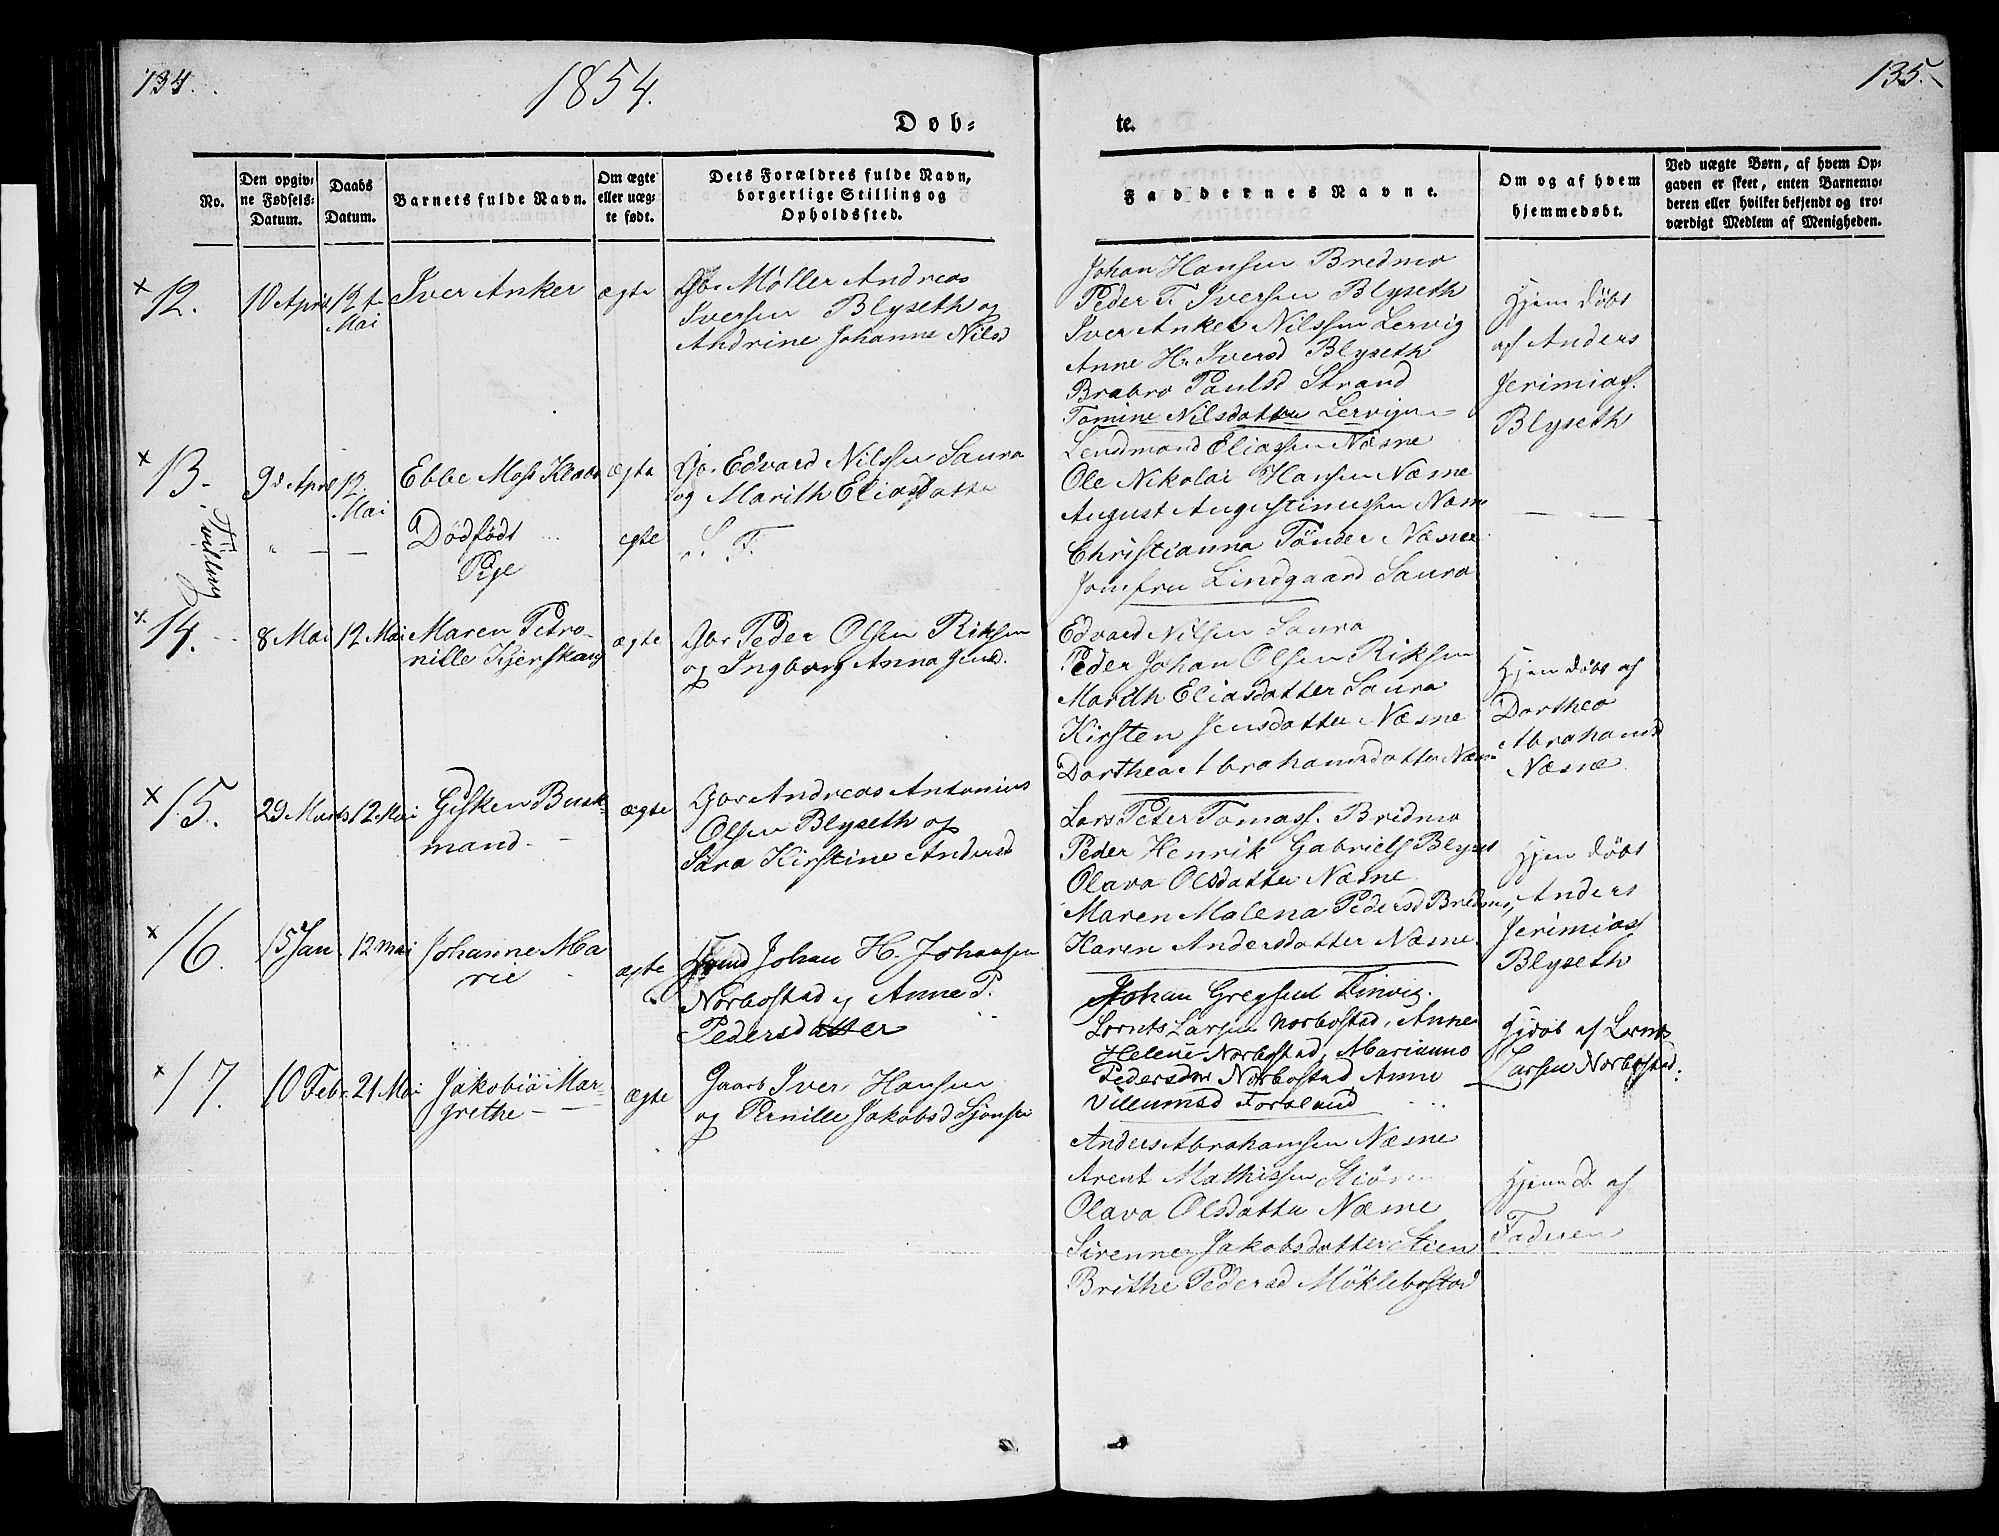 134.
1854.
Døb-
No.
Den opgiv-
ne Fødsels-
Datum.
Daabs
Datum.
Barnets fulde Navn.
Om ægte
eller uæg-
te født.
Dets Forældres fulde Navn,
borgerlige Stilling og
Opholdssted.
12. 10 April 12te Mai Iver Anker ægte Gbr Møller Andreas
Iversen Blyseth og
Andrine Johanne Nilsd
13. 9d April 12 Mai Ebbe Moss ægte Gbr Edvard Nilssen Saura
og Marith Eliasdatter
Tvilling
" — — Dødfødt ægte S. F.
Pige
14. 8 Mai 12 Mai Maren Petro- ægte Gbr Peder Olsen Riksen
nille Kjerskang og Ingborg Anna Jensd.
15. 29 Marts 12 Mai Gisken Busk- ægte Gbr Andreas Antonius
mand - Olsen Blyseth og
Sara Kirstine Andersd
16. 15 Jan. 12 mai Johanne Ma ægte Johan H. Johansen
rie Norbostad og Anne P.
Pedersdatter
17. 10 Febr. 21 Mai Jakobia Mar- ægte Gaarb Iver Hansen
grethe - og Pernille Jakobsd Sjonsen
135.
te.
Faddernes Navne.
Om og af hvem
hjemmedøbt.
Ved uægte Børn, af hvem Op-
gaven er skeet, enten Barnemo-
deren eller hvilket bekjendt og tro-
værdigt Medlem af Menigheden.
Johan Hansen Bredmo
Peder T. Iversen Blyseth
Iver Anker Nilssen Lervig
Anne H. Iversd Blyseth
Brabro Paulsd Strand
Tomine Nilsdatter Lervigen
Hjem døbt
af Anders
Jerimias.
Blyseth
Lendmand Eliassen Næsne
Ole Nikolai Hansen Næsne
August Augustinussen Næsne
Christianna Tønder Næsne
Jomfru Lindgaard Saura
— — —
Edvard Nilsen Saura
Peder Johan Olsen Riksen
Marith Eliasdatter Saura
Kirsten Jensdatter Næsne
Dorthea Abrahamsdatter Næsn
Hjem døbt af
Dorthea
Abrahamsd
Næsne
Lars Peter Tomass. Bredmo
Peder Henrik Gabriels Blyset
Olava Olsdatter Næsne
Maren Malena Pedersd Bredmo,
Karen Andersdatter Næsne
Hjem døbt
Anders
Jerimias
Blyseth
Johan Gregsent Finvig.
Lornts Larsen Norbostad, Anne
Helene Norbostad, Marianno
Pedersdtr Norbostad Anne
Villumsd Forslund
Hjdøb af Lornts
Larsen Norbostad.
Anders Abrahamsen Næsne
Arent Mathissen
Olava Olsdatter Næsne
Sirenne Jakobsdatter Stien
Brithe Pedersd Møklebostad
Hjem D. af
Faderen